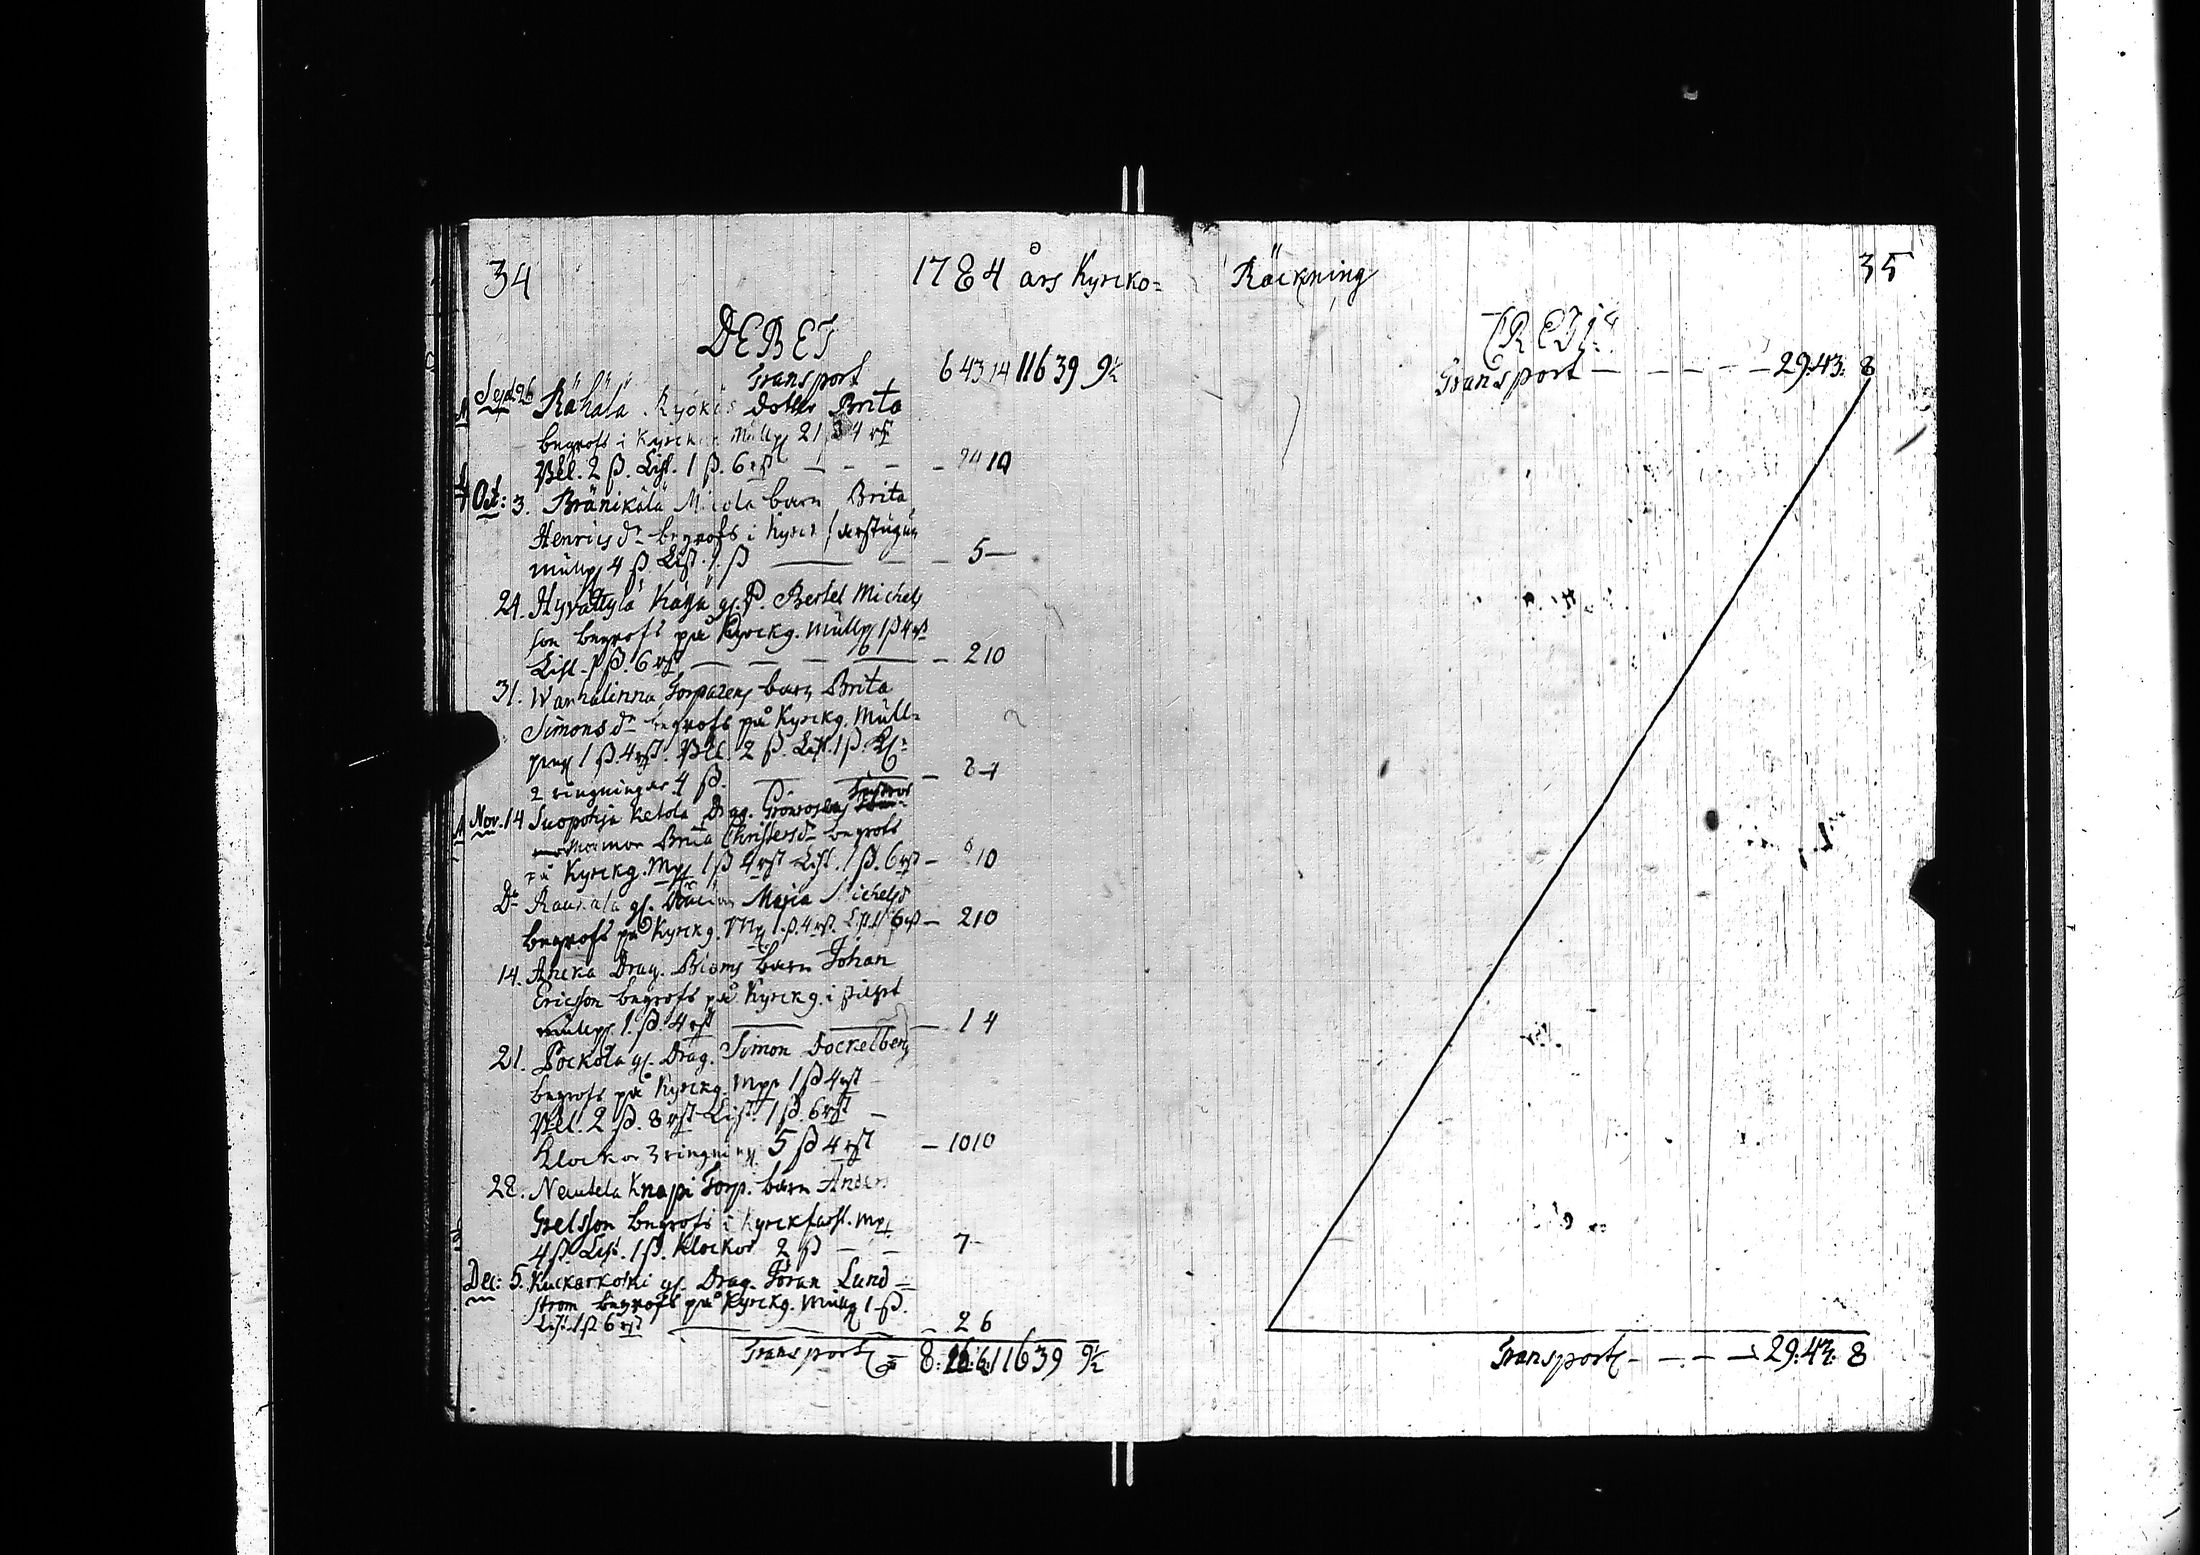 34
1784 års Kyrcko=
DEBET
Transport 6 43 14 116 39 9½
Sept. 26 Rähälä Kyökis dotter Brita
begrofs i Kyrckan Mullp 21 ß 4 rst
Bkl. 2 ß. List. 1 ß. 6 rst — — — — 24 10
Oct: 3. Bränikälä Micola barn Brita
Henrics dr begrofs i Kyrck farstugun
mullp 4 ß List. 1. ß — — — 5 —
24. Hyvättylä Kaya gl. P. Bertel Michels
son begrofs på Kyrckg. Mullp 1 ß 4 rst
List. 1 ß. 6 rst — — — — — 2 10
31. Wanhalinna Torparens barn Brita
Simons dr begrofs på Kyrckg. Mull=
peng 1 ß. 4 rst. Bkl. 2 ß. List. 1 ß.
2 ringningar 4 ß. — — — 8 4
Nov. 14 Suopohja Ketola Drag. Grönroos
mormor Brita Christersdr begrofs
på Kyrckg. Mp 1 ß 4 rst List. 1 ß. 6 rst — 2 10
Do gl. Maria Michelsd
begrofs på Kyrckg. Mp 1. ß. 4 rst. List 1 ß 6 rst — 2 10
14. Ancka Drag. Bioms barn Johan
Ericsson begrofs på Kyrckg. i
mullp. 1. ß. 4 rst — — — 1 4
21. Pockola gl. Drag. Simon Dockelberg
begrofs på Kyrckg. Mpp 1 ß 4 rst
Bkl. 2 ß. 8 rst List. 1 ß. 6 rst —
Klockor 3 ringning 5 ß 4 rst — 10 10
28. Nautela Knapi Torp. barn Anders
begrofs i Kyrckfarst. Mp
4 ß. List. 1 ß. Klockor 2 ß — — 7 —
Dec: 5. Kuckarkoski gl. Drag. Jöran Lund=
strom begrofs på Kyrckg. Mullp 1 ß.
List. 1 ß 6 rst — — — 2 6
Transport = 8: 16. 6. 116 39 9½
Räckning
35
CREDIT
Transport — — — — — 29:43: 8
Transport — — — — 29:43: 8